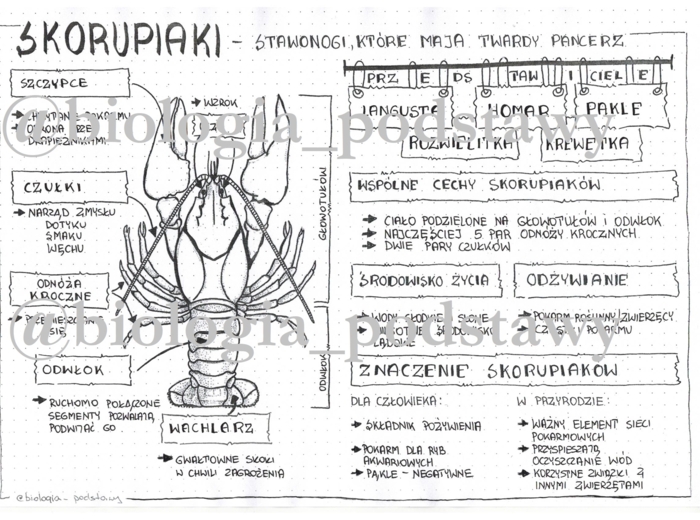 SKORUPIAKI - STAWONOGI, KTÓRE MAJĄ TWARDY PANCERZ
SZCZYPCE
OBRONA PRZED
DRAPIEŻNIKAMI
WZROK
CZUŁKI
NARZĄD ZMYSŁU
DOTYKU
SMAKU
WĘCHU
ODNÓŻA
KROCZNE
SIĘ
ODWŁOK
RUCHOMO POŁĄCZONE
SEGMENTY POZWALAJĄ
PODWIJAĆ GO
WACHLARZ
GWAŁTOWNE SKOKI
W CHWILI ZAGROŻENIA
GŁOWOTUŁÓW
ODWŁOK
PRZEDSTAWICIELE
LANGUSTA HOMAR PĄKLE
ROZWIELITKA KREWETKA
WSPÓLNE CECHY SKORUPIAKÓW
CIAŁO PODZIELONE NA GŁOWOTUŁÓW I ODWŁOK
NAJCZĘŚCIEJ 5 PAR ODNÓŻY KROCZNYCH
DWIE PARY CZUŁKÓW
ŚRODOWISKO ŻYCIA
WODY SŁODKIE I SŁONE
ŚRODOWISKO
LĄDOWE
ODŻYWIANIE
POKARM ROŚLINNY/ZWIERZĘCY
POKARMU
ZNACZENIE SKORUPIAKÓW
DLA CZŁOWIEKA:
SKŁADNIK POŻYWIENIA
POKARM DLA RYB
AKWARIOWYCH
PĄKLE - NEGATYWNE
W PRZYRODZIE:
WAŻNY ELEMENT SIECI
POKARMOWYCH
PRZYSPIESZAJĄ
OCZYSZCZANIE WÓD
KORZYSTNE ZWIĄZKI Z
INNYMI ZWIERZĘTAMI
@biologia_podstawy
@biologia_podstawy
@biologia_podstawy